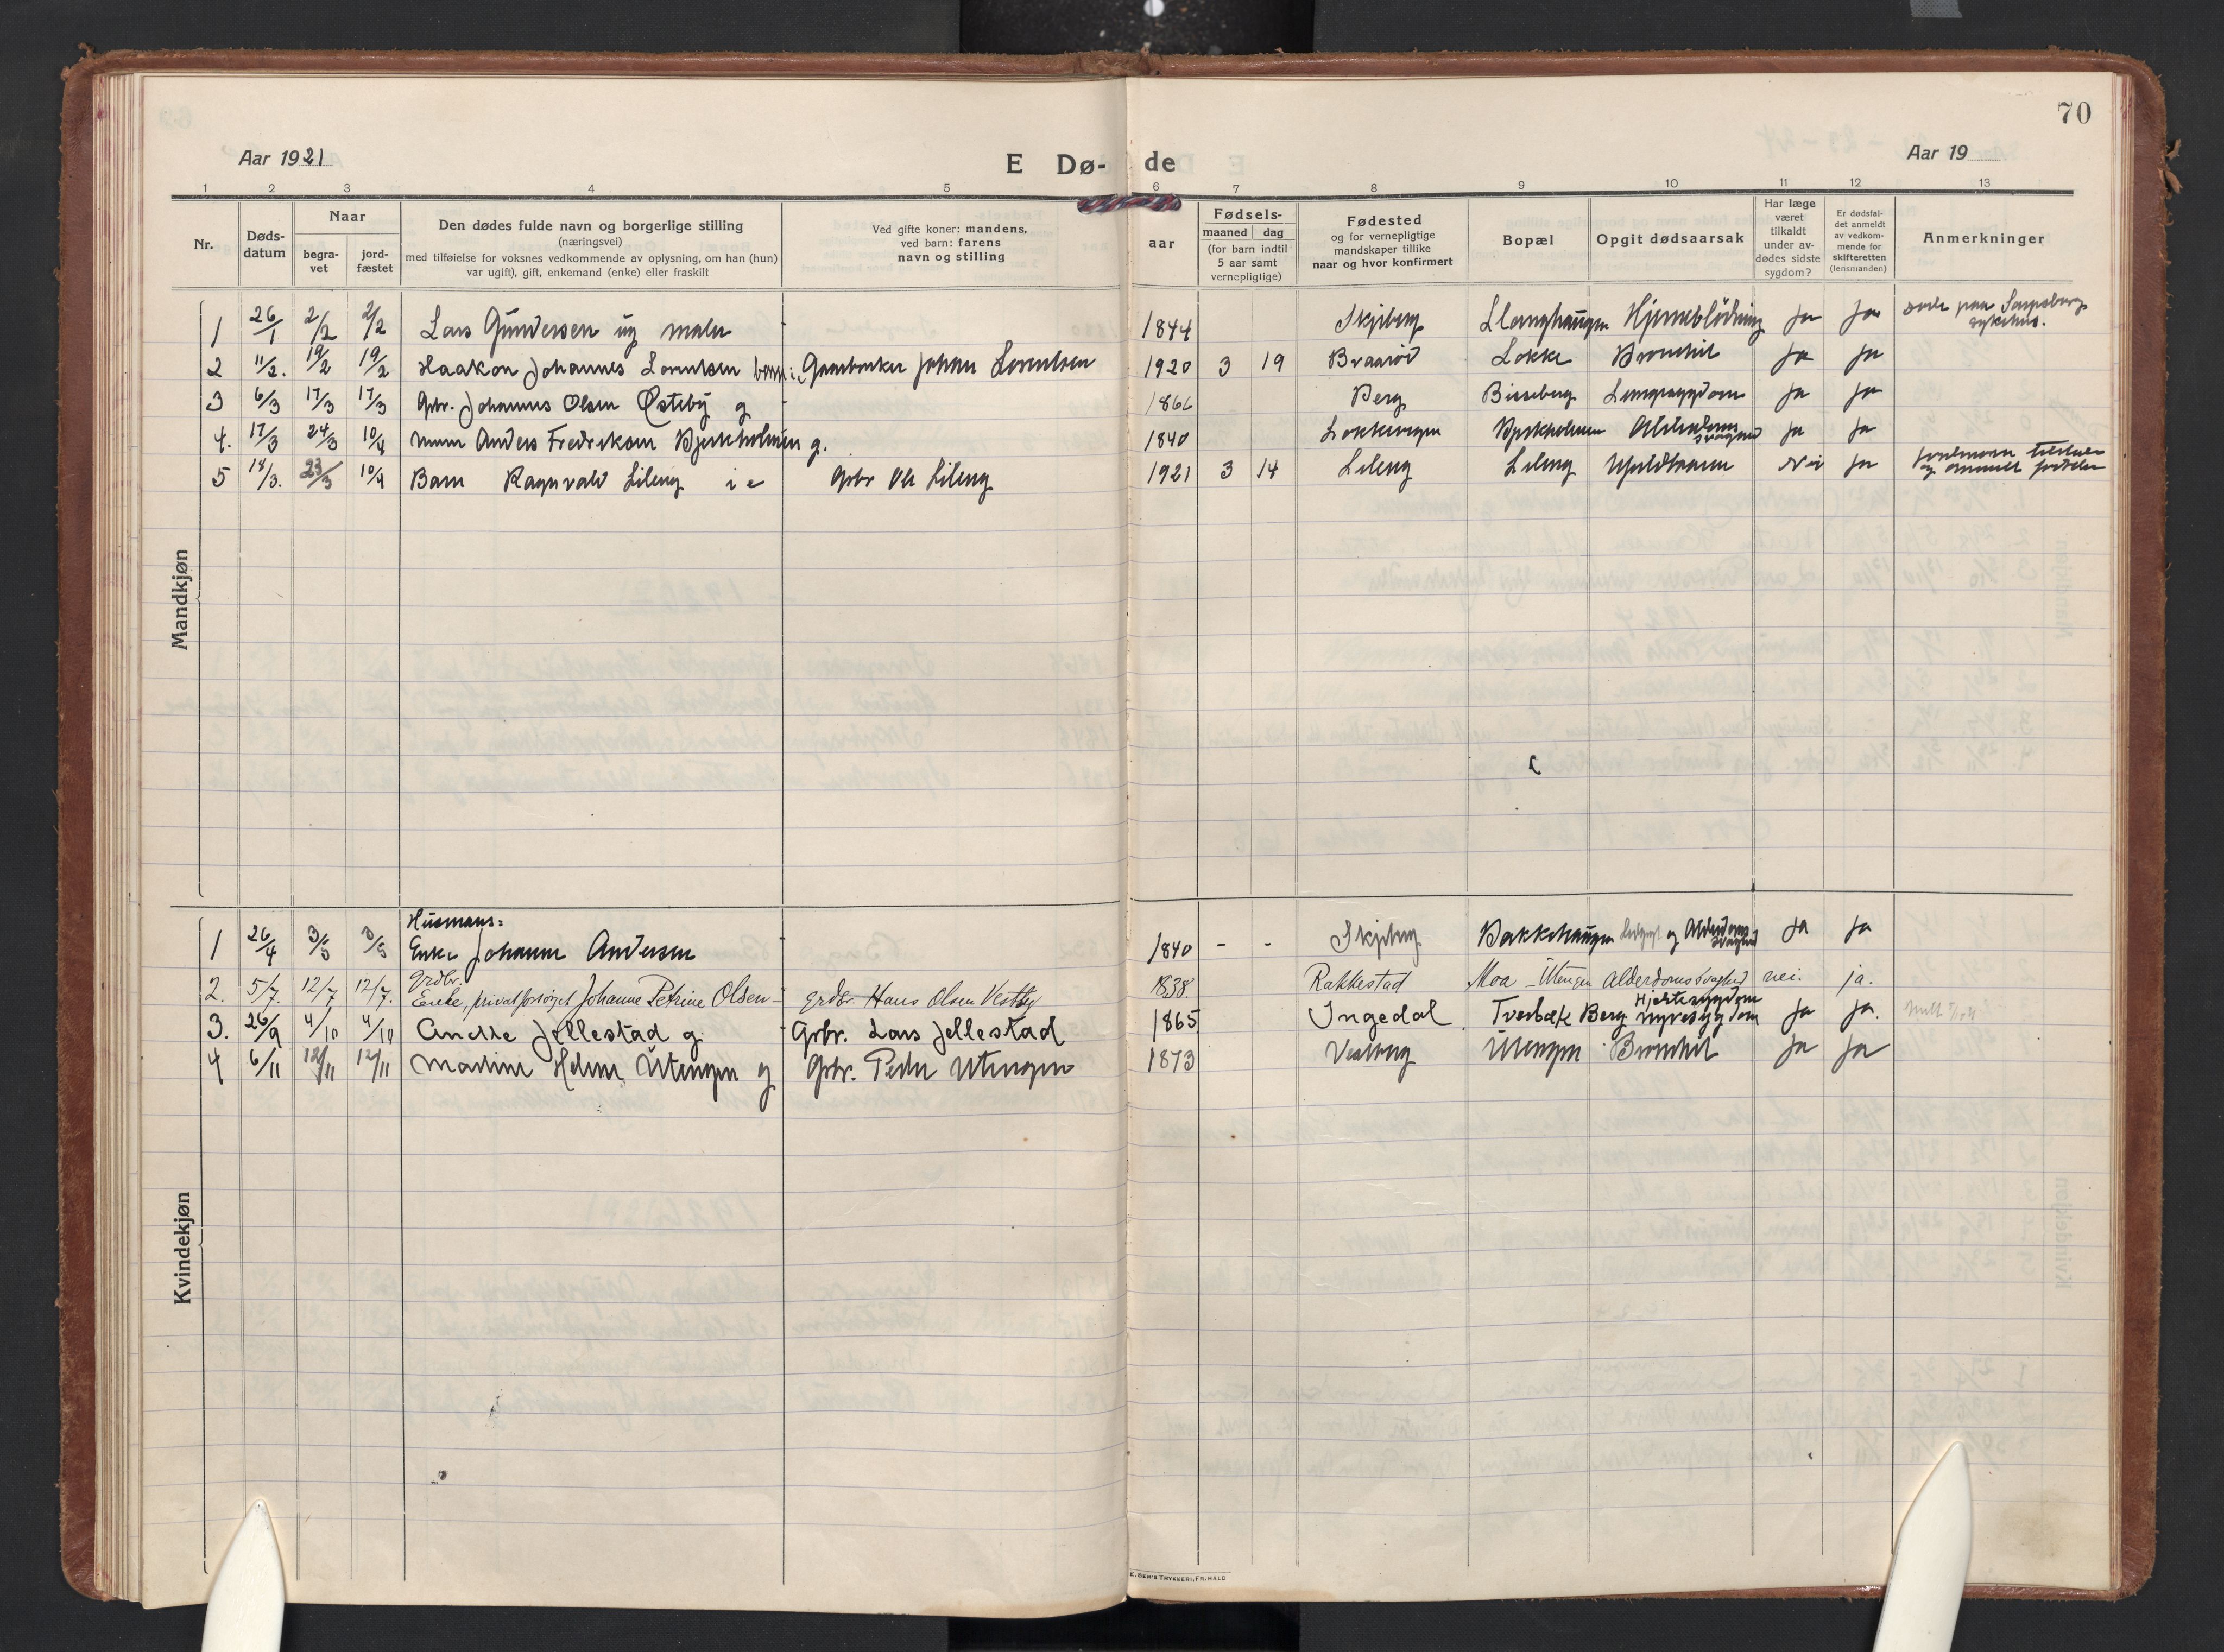 70
Aar 1921
E Dø-
de
Aar 19
1 2 3 4 5 6 7 8 9 10 11 12 13
Nr.
Døds-
datum
Naar
begra-
vet
jord-
fæstet
Den dødes fulde navn og borgerlige stilling
(næringsvei)
med tilføielse for voksnes vedkommende av oplysning, om han (hun)
var ugift), gift, enkemand (enke) eller fraskilt
Ved gifte koner: mandens,
ved barn: farens
navn og stilling
aar
Fødsels-
maaned dag
(for barn indtil
5 aar samt
vernepligtige)
Fødested
og for vernepligtige
mandskaper tillike
naar og hvor konfirmert
Bopæl
Opgit dødsaarsak
Har læge
været
tilkaldt
under av-
dødes sidste
sygdom?
Er dødsfal-
det anmeldt
av vedkom-
mende for
skifteretten
(lensmanden)
Anmerkninger
Mandkjøn
1 26/1 2/2 2/2 Lars Gundersen ug maler - 1844 Skjeberg Hjerneblödning Ja Ja døde paa Sarpsborg
sykehus.
2 11/2. 19/2 19/2 Haakon Johannes Lorentsen barn Gaardbruker Johan Lorentsen 1920 3 19 Braarød Løkke Bronchit Ja Ja
3 6/3 17/3 17/3 Grbr. Johannes Olsen Østeby g - 1866 Berg Bisseberg Lungesygdom Ja Ja
4. 17/3 24/3 10/4 Anders Fredriksen Bjerkholmen g. 1840 Bjerkholmen Alderdoms
svaghed Ja Ja
5 18/3. 23/3 10/4 Barn Ragnvald Lileng Grbr Ole Lileng 1921 3 14 Lileng Lileng Nei Ja
Kvindekjøn
Husmans=
1 26/4 3/5 3/5 Enke Johanne Andersen - 1840 - - Skjeberg Bakkehaugen og Alderdoms
svaghed Ja Ja
Grdbr.
2. 5/7. 12/7 12/7. Enke, privat forsørget Johanne Petrine Olsen - grdbr. Hans Olsen Vestby 1838. Rakkestad Moa - Utengen Alderdomssvaghed nei. ja.
3. 26/9 4/10 4/10 Anette Jellestad g. Grbr. Lars Jellestad 1865 Ingedal Tverbæk Berg Hjertesygdom
nyresygdom Ja Ja.
4 6/11 12/11 12/11 Martine Helene Utengen g Grbr. Peder Utengen 1873 Utengen Bronchit Ja Ja
E. SEM'S TRYKKERI, FR.HALD